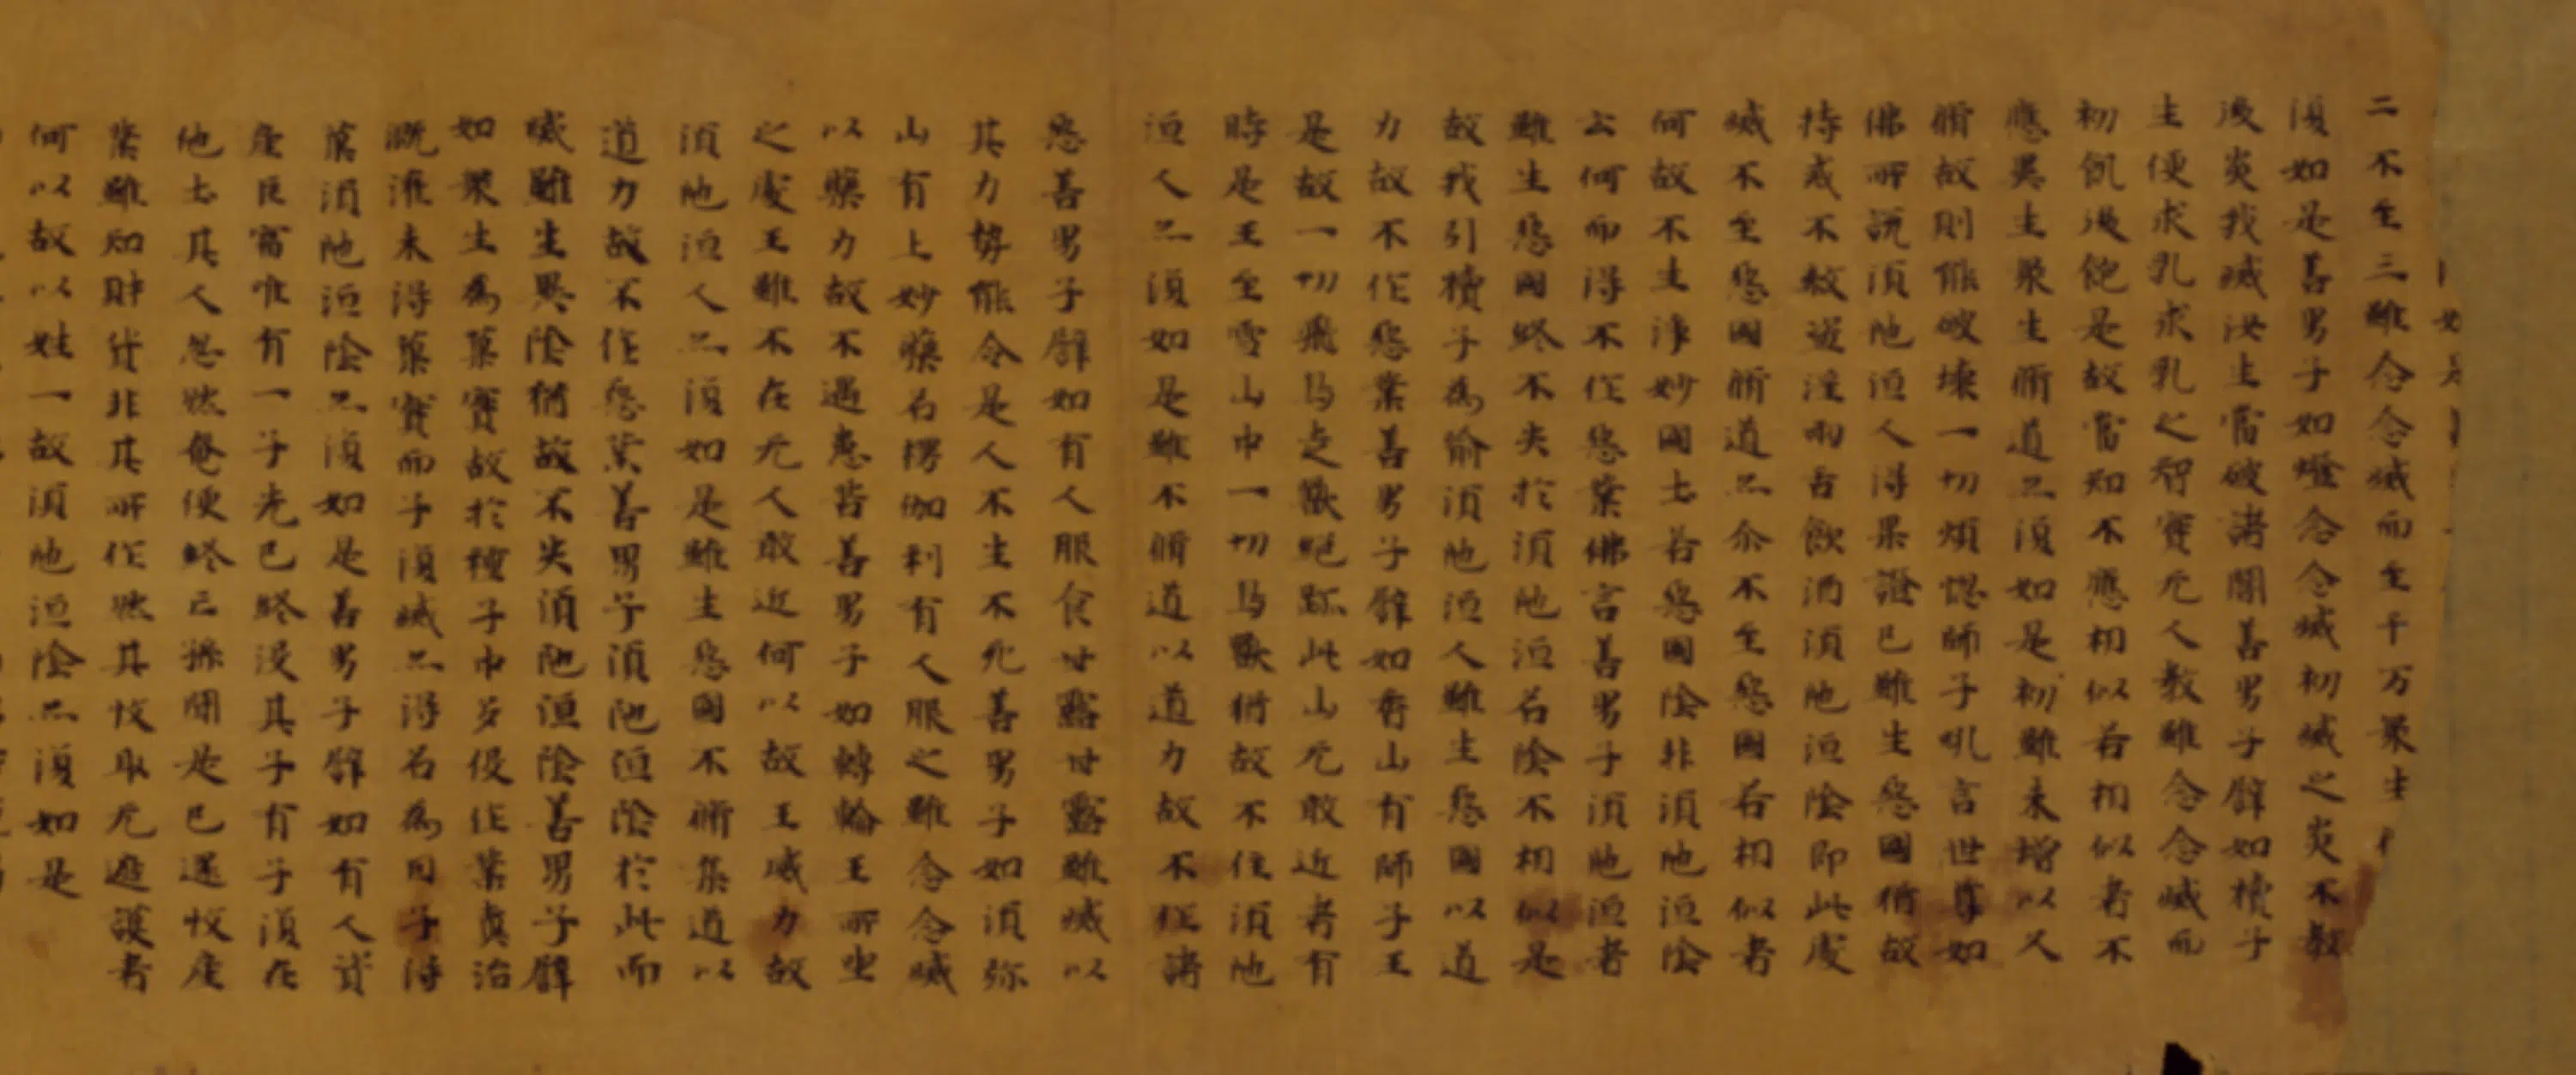 二不至三雖念念滅而至千万衆生
復如是善男子如燈念念滅初滅之炎不教
後炎我滅汝生當破諸闇善男子譬如犢子
生便求乳求乳之智實无人教雖念念滅而
初飢後飽是故當知不應相似若相似者不
應異生衆生脩道亦復如是初雖未增以久
脩故則能破壞一切煩惱師子吼言世尊如
佛所說須陁洹人得果證已雖生惡國猶故
持戒不煞盜婬兩舌飲酒須陁洹陰即此處
滅不至惡國脩道亦尒不至惡國若相似者
何故不生淨妙國土若惡國陰非須陁洹陰
云何而得不作惡業佛言善男子須陁洹者
雖生惡國終不失於須陁洹名陰不相似是
故我引犢子為喻須陁洹人雖生惡國以道
力故不作惡業善男子譬如香山有師子王
是故一切飛鳥走獸絕跡此山无敢近者有
時是王至雪山中一切鳥獸猶故不住須陁
洹人亦復如是雖不脩道以道力故不作諸
惡善男子譬如有人服食甘露甘露雖滅以
其力勢能令是人不生不死善男子如須弥
山有上妙藥名楞伽利有人服之雖念念滅
以藥力故不遇患苦善男子如轉輪王所坐
之處王雖不在无人敢近何以故王威力故
須陁洹人亦復如是雖生惡國不脩集道以
道力故不作惡業善男子須陁洹陰於此而
滅雖生異陰猶故不失須陁洹陰善男子譬
如衆生為菓實故於種子中多役作業糞治
溉灌未得菓實而子復滅亦得名為因子得
菓須陁洹陰亦復如是善男子譬如有人資
產巨富唯有一子先已終沒其子有子復在
他土其人忽然奄便終亡孫聞是已還收產
業雖知財貨非其所作然其收取无遮護者
何以故以姓一故須陁洹陰亦復如是